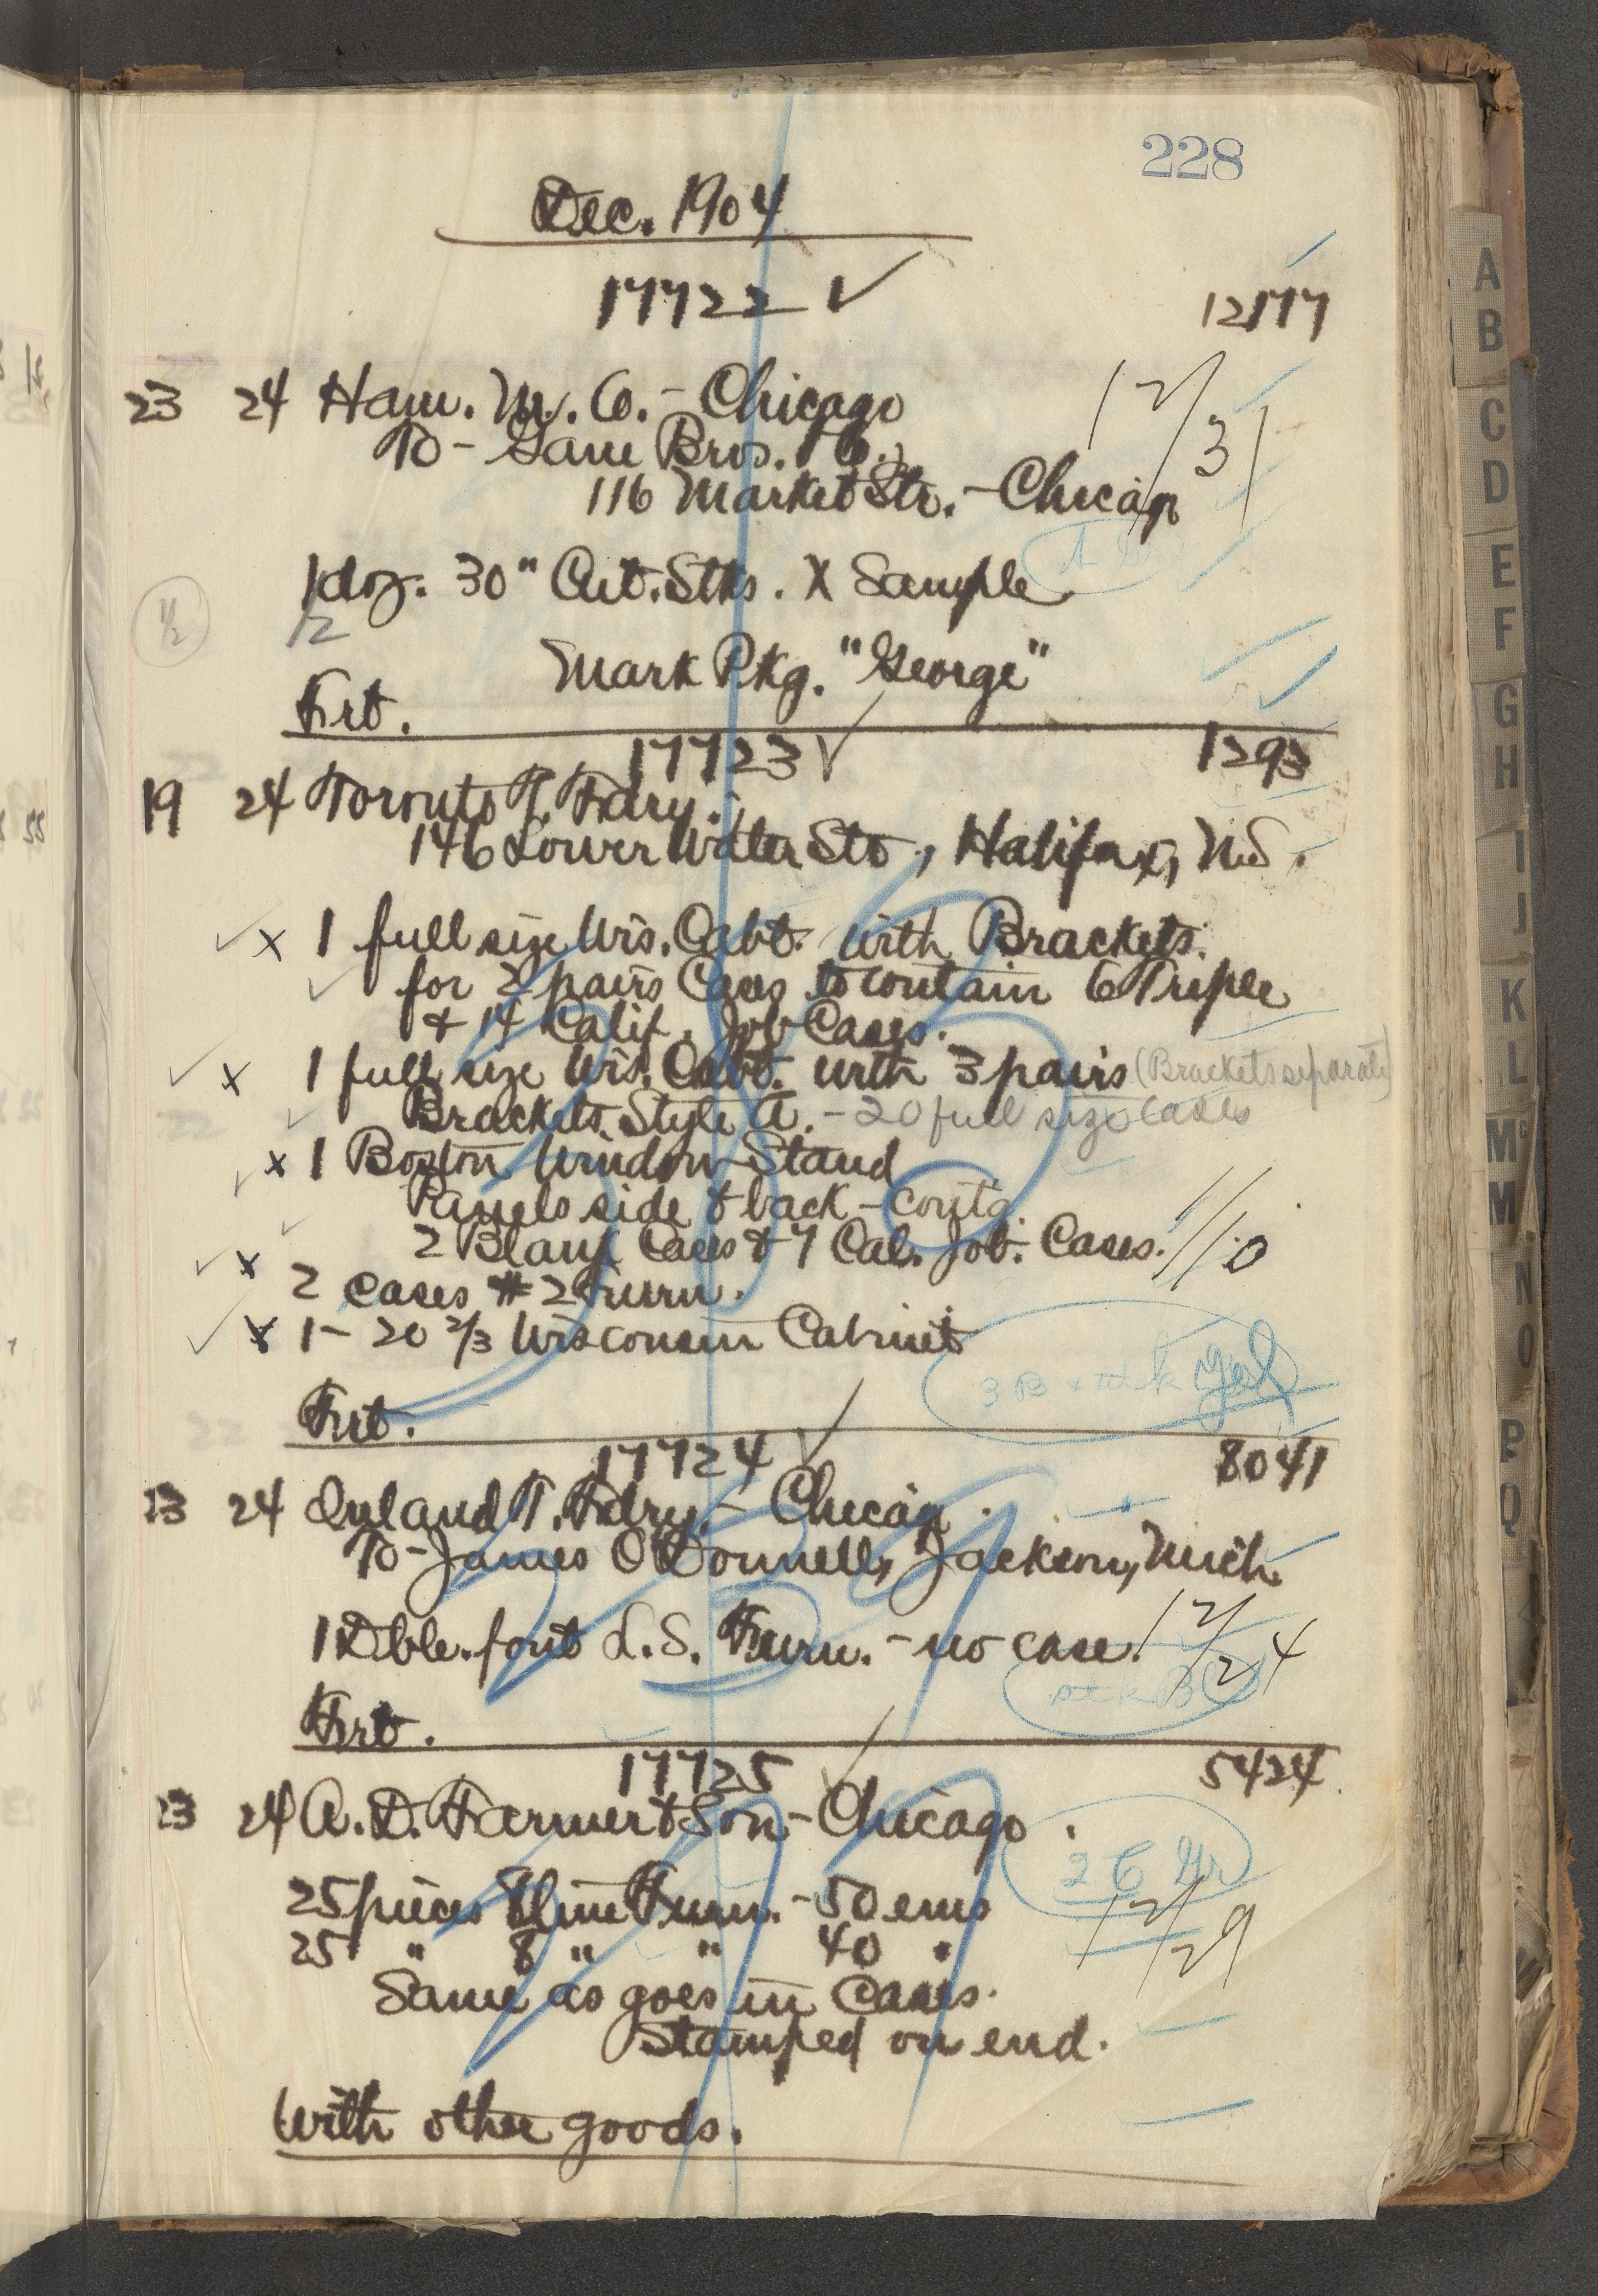 228
Dec. 1904
17722 ✓ 12177
23 24 Ham. M. Co. - Chicago 12/31
To - Gane Bros. & Co.,
116 Market Str. - Chicago
1 doz. 30" Cut. Stks. X Sample
1/2 12
Mark Pkg. "George"
Frt.
17723 ✓ 1293
19 24 Toronto T. Fdry.,
146 Lower Water Str., Halifax, N.S.
✓ x 1 full size Wis. Cabt. with Brackets
✓ for 2 pairs Cases to contain 6 Triple
& 14 Calif. Job Cases.
✓ x 1 full size Wis. Cabt. with 3 pairs (Brackets separate)
✓ Brackets. Style A. - 20 full size cases
✓ x 1 Boston Window Stand
✓ Panels side & back - contg
2 Blank Cases & 7 Cal. Job. Cases. 1/10
✓ x 2 cases # 2 Furn.
✓ x 1 - 20 2/3 Wisconsin Cabinet
3 B
Frt.
17724 ✓ 8041
23 24 Inland T. Fdry. - Chicago.
To - James O'Donnell, Jackson, Mich.
1 Dble. font L.S. Furn. - no case. 12/24
Frt.
17725 ✓ 5424
23 24 A. D. Farmer & Son - Chicago.
25 pieces 8 line Furn. - 50 ems
25 " 8 " " 40 " 12/29
Same as goes in Cases.
Stamped on end.
With other goods.
A
B
C
D
E
F
G
H
I
J
K
L
Mc
M
N
O
P
Q